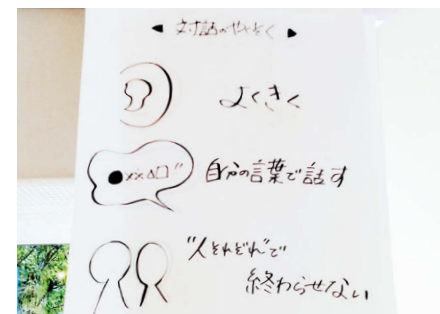 ◀ 対話のやくそく ▶
よくきく
●××△□"
自分の言葉で話す
"人それぞれ"で
終わらせない